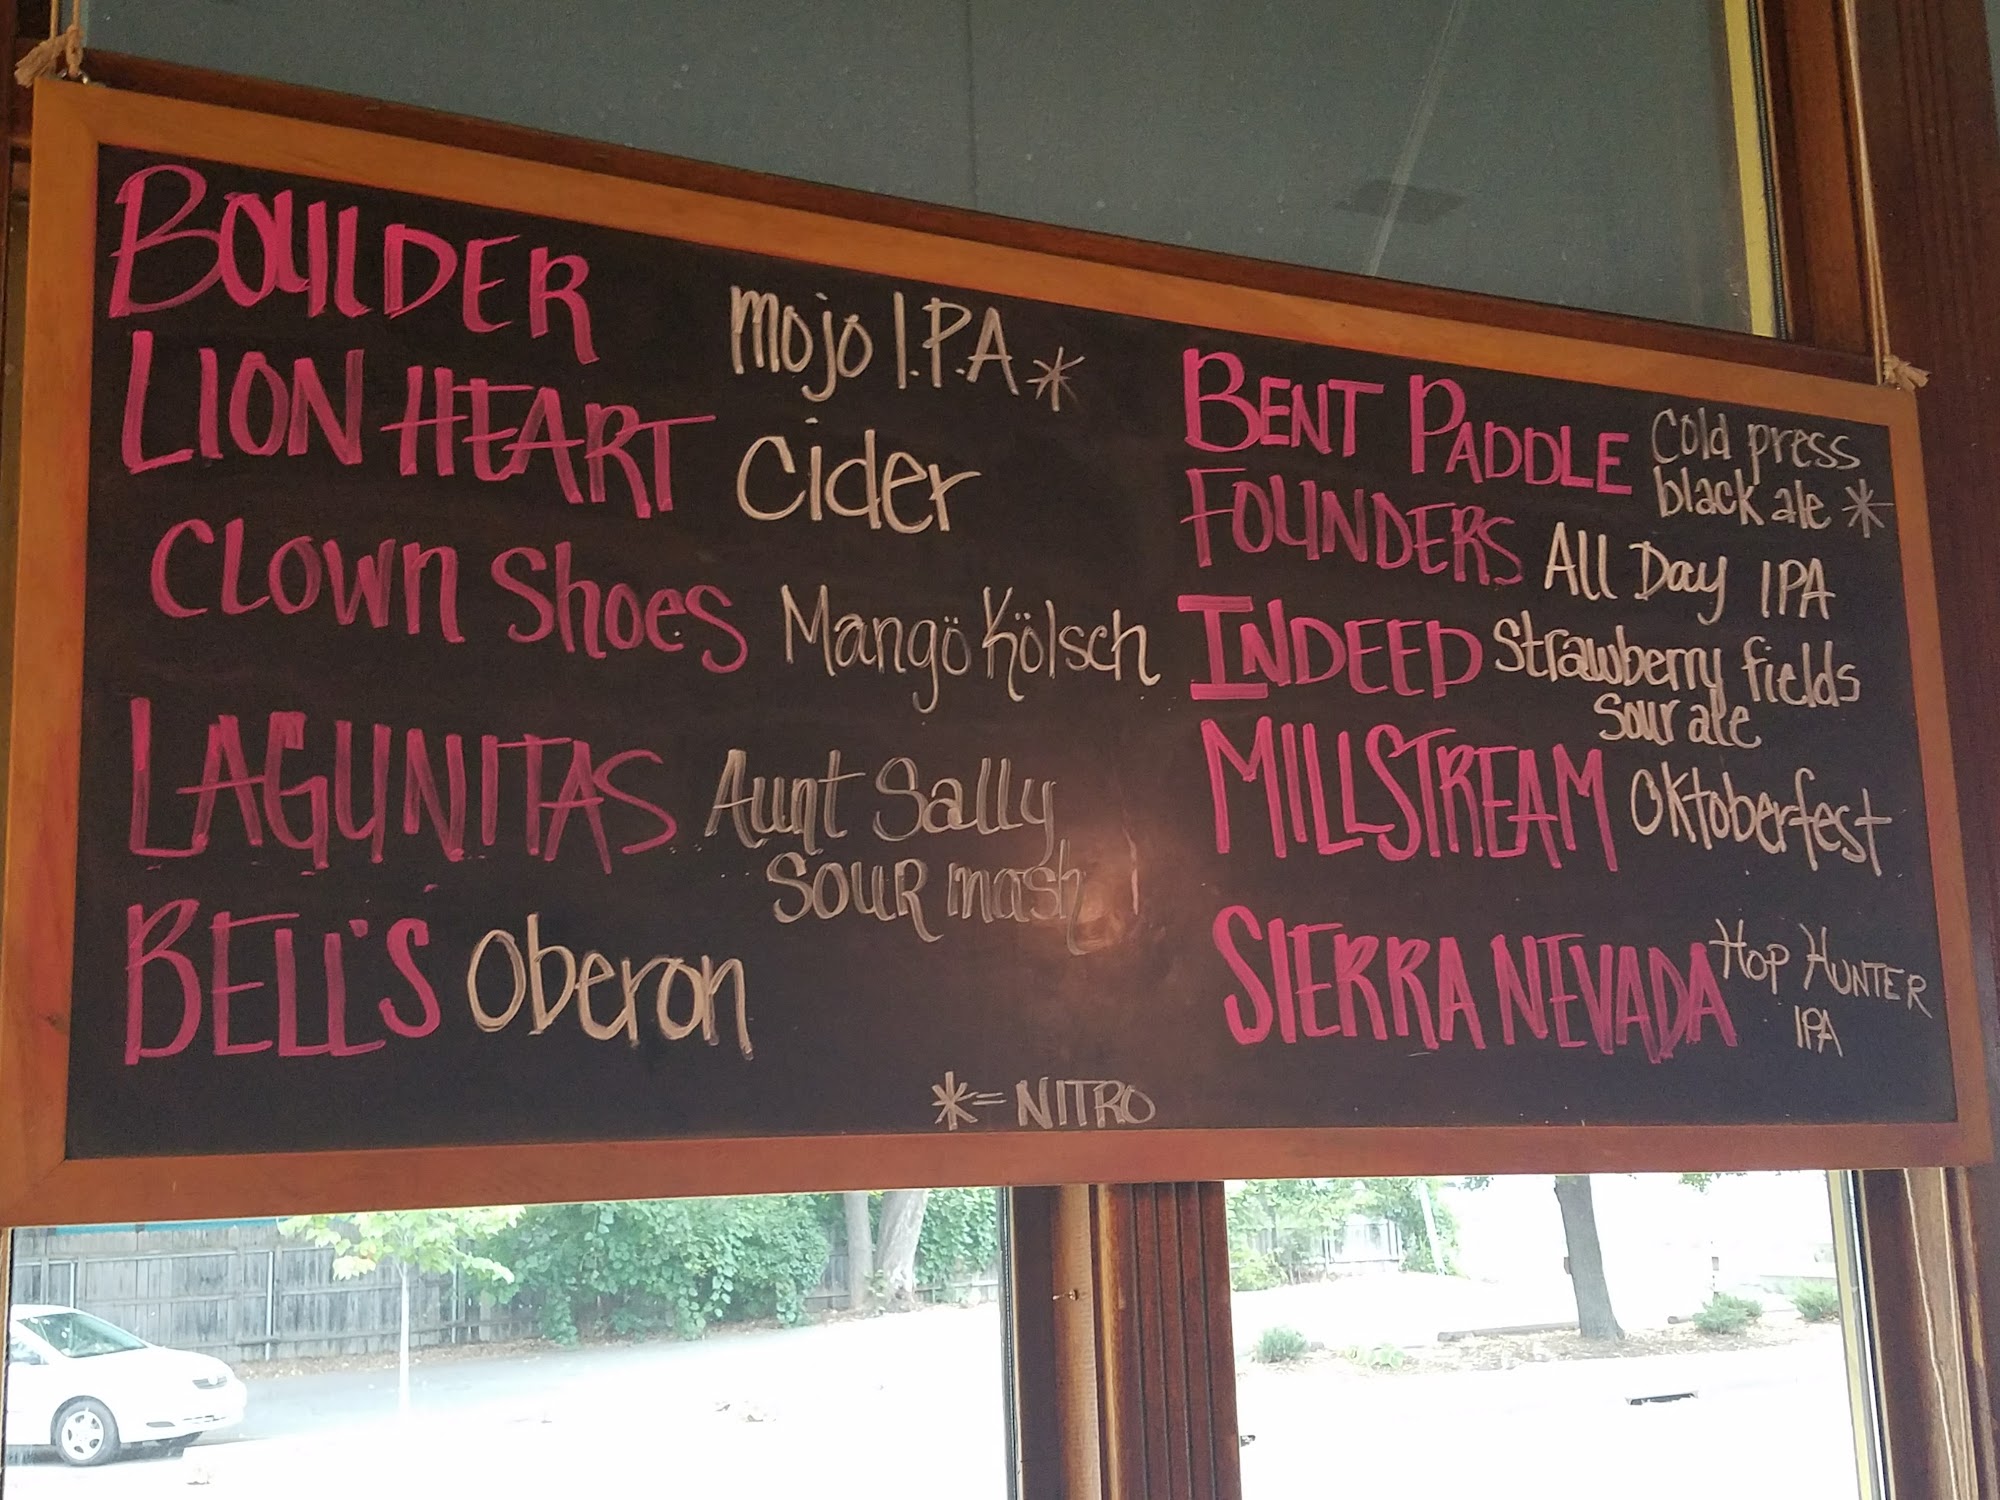 BOULDER Mojo I.P.A *
LION HEART Cider
CLOWN Shoes Mangö Kölsch
LAGUNITAS Aunt Sally
SOUR mash
BELL'S Oberon
BENT PADDLE Cold press
black ale *
FOUNDERS All Day IPA
INDEED Strawberry fields
Sour ale
MILLSTREAM Oktoberfest
SIERRA NEVADA HOP HUNTER
IPA
* = NITRO